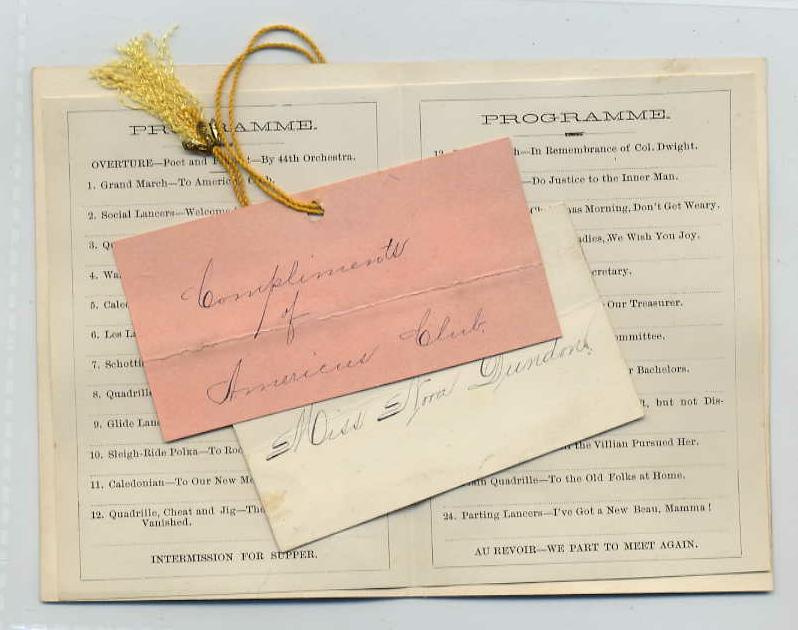 PROGRAMME.
OVERTURE—Poet and —By 44th Orchestra.
1. Grand March—To
2. Social Lancers—Welcome
3.
4.
5.
6. Les
7.
8. Quadrille
9. Glide
10. Sleigh-Ride Polka—To
11. Caledonian—To Our New
12. Quadrille, Cheat and Jig—The
Vanished.
INTERMISSION FOR SUPPER.
PROGRAMME.
In Remembrance of Col. Dwight.
—Do Justice to the Inner Man.
Morning, Don't Get Weary.
We Wish You Joy.
Our Treasurer.
Bachelors.
but not Dis-
the Villian Pursued Her.
Quadrille—To the Old Folks at Home.
24. Parting Lancers—I've Got a New Beau, Mamma!
AU REVOIR—WE PART TO MEET AGAIN.
Compliments
of
Americus Club.
Miss Nora Dundon.